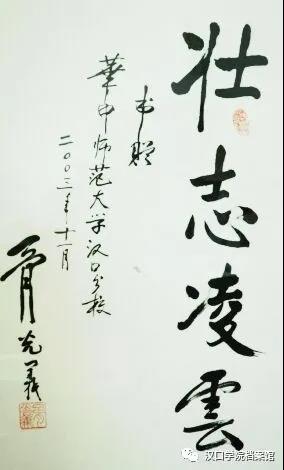 壮志凌雲
书赠
華中师范大学汉口分校
二〇〇三年十一月
胥光義
汉口学院档案馆